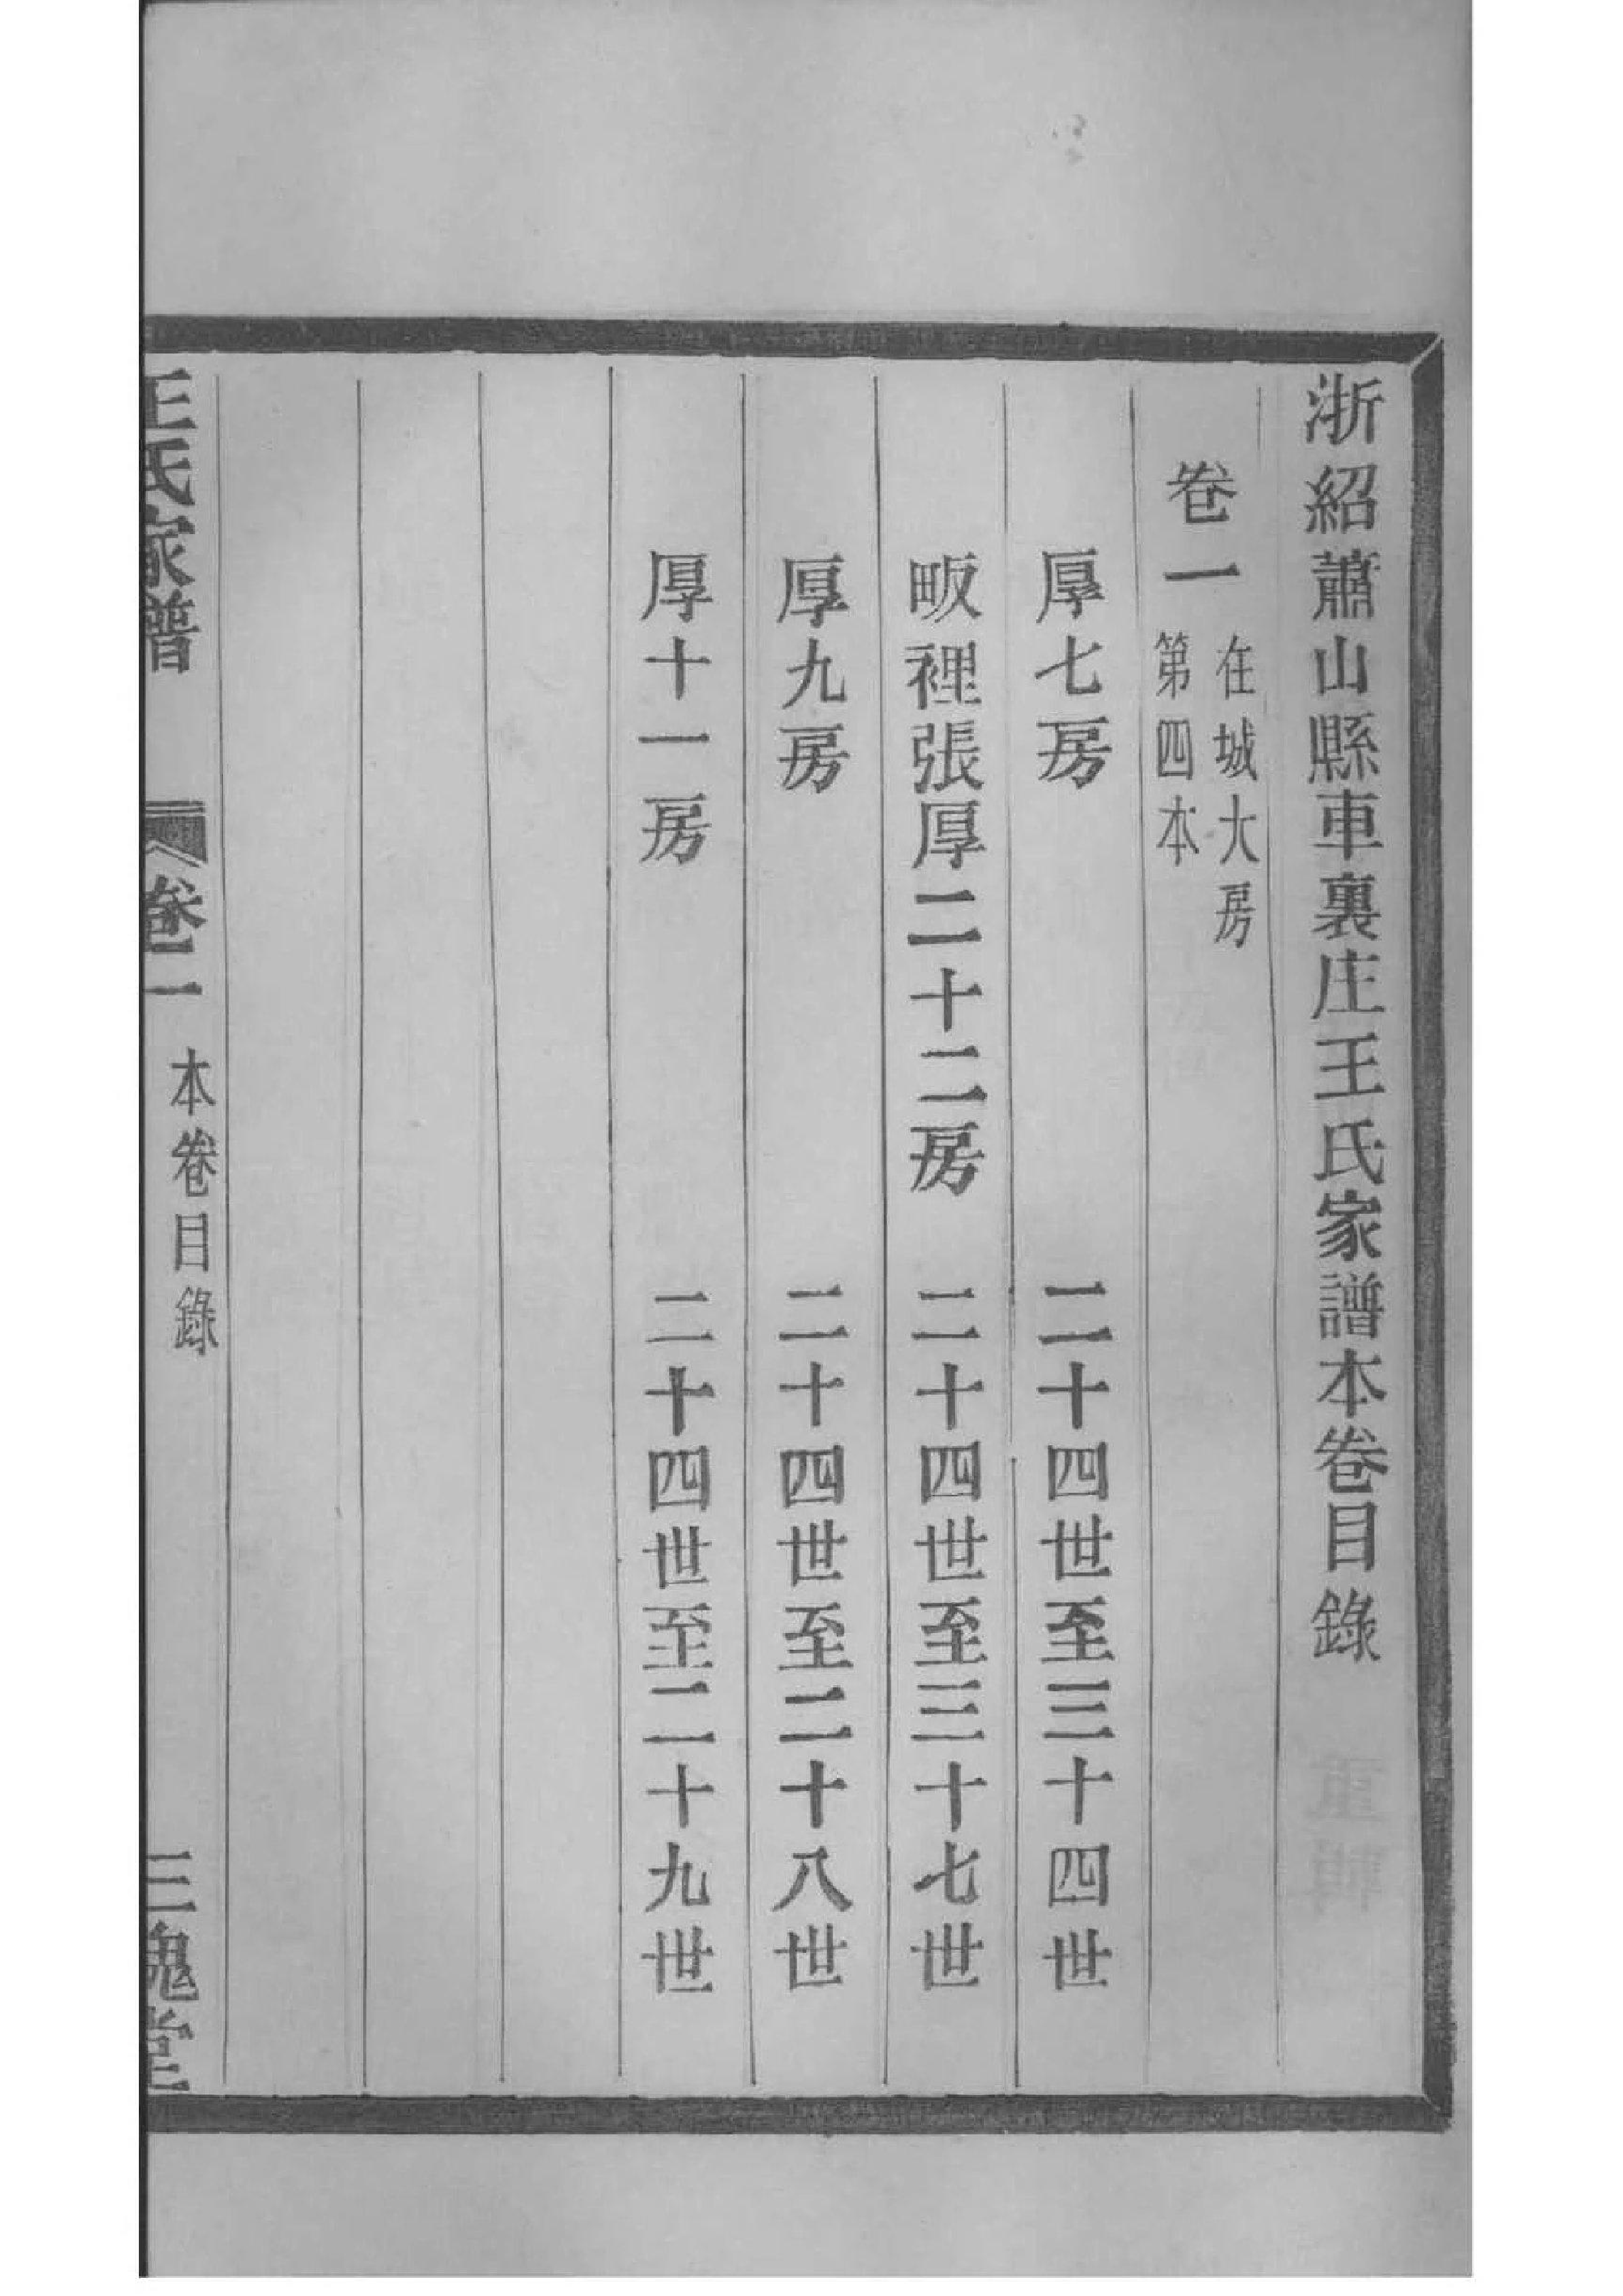 浙紹蕭山縣車裏庄王氏家譜本卷目錄
卷一
在城大房
第四本
厚七房 二十四世至三十四世
畈裡張厚二十二房 二十四世至三十七世
厚九房 二十四世至二十八世
厚十一房 二十四世至二十九世
王氏家譜 卷一 本卷目錄 三槐堂